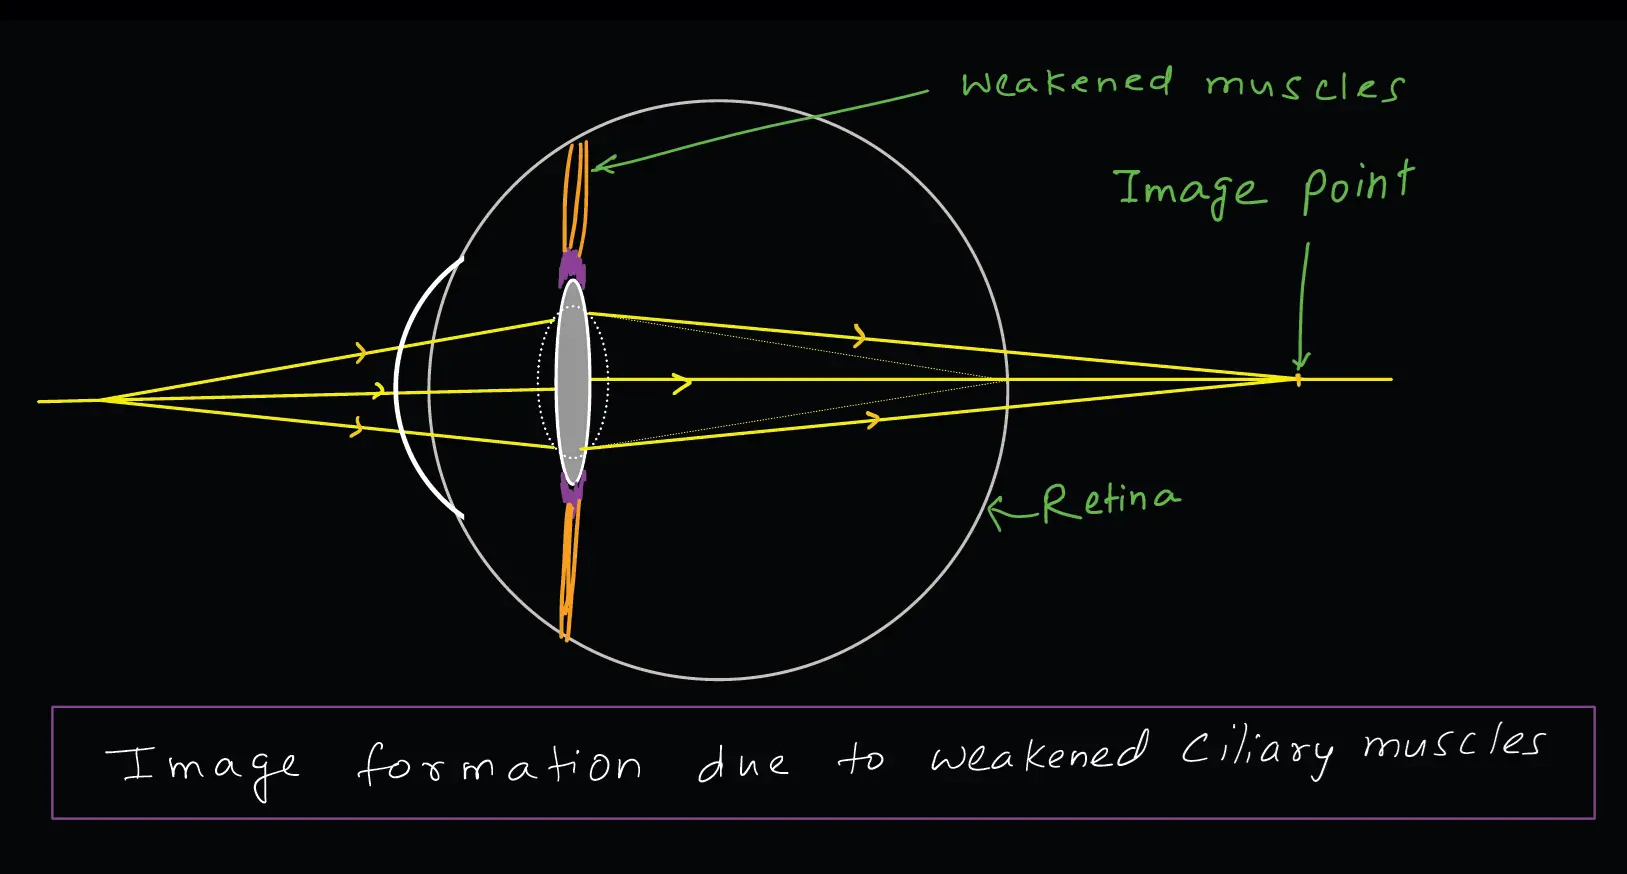 Weakened muscles
Image point
Retina
Image formation due to weakened ciliary muscles